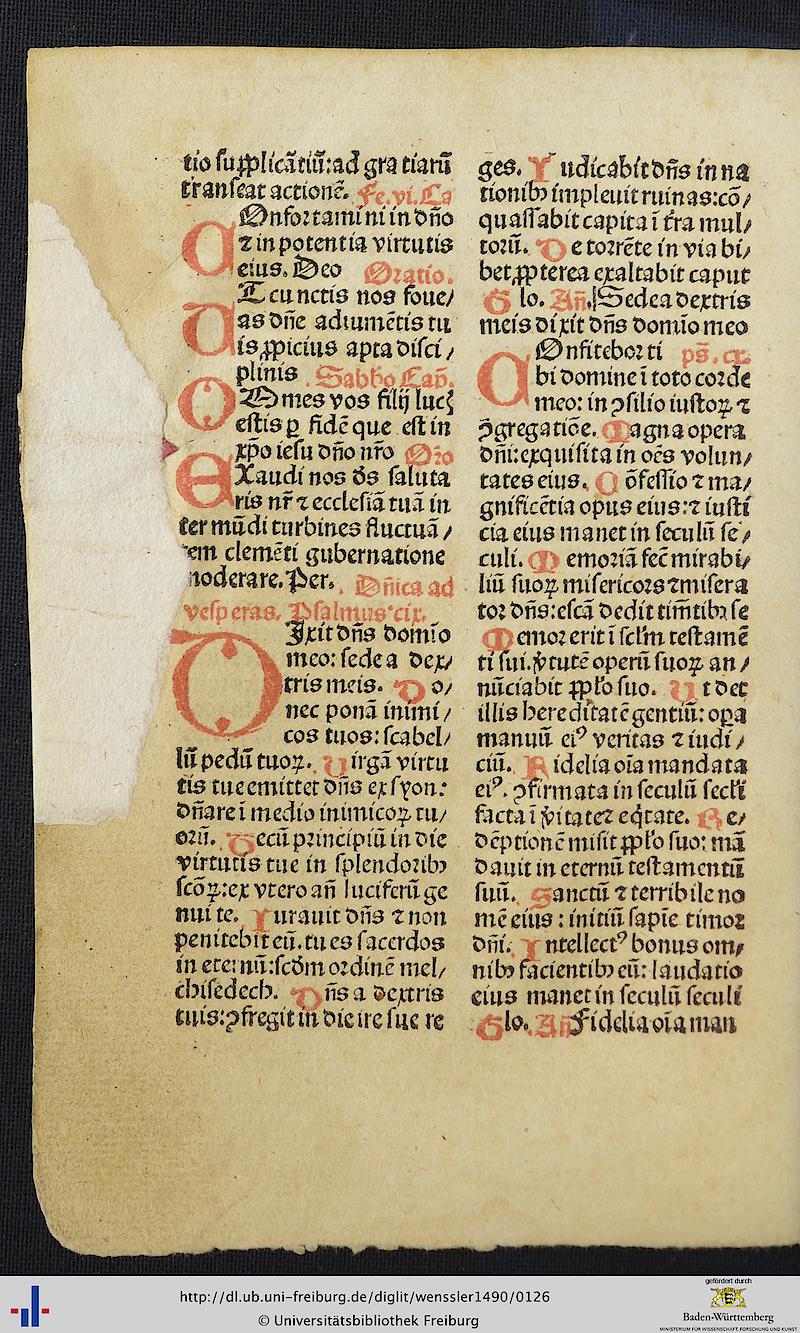 tio suꝓplicãtiũ: ad gratiarũ
transeat actionẽ. Fe. vi. Ca
COnfortamini in dño
⁊ in potentia virtutis
eius. Deo Oratio.
AT cunctis nos foue/
as dñe adiumẽtis tu
is ꝓpicius apta disci/
plinis Sabbo Cap̃.
OMmes vos filij lucꝭ
estis ꝑ fidẽ que est in
xp̃o iesu dño nr̃o Oro
EXaudi nos ds̃ saluta
ris nr̃ ⁊ ecclesiã tuã in
ter mũdi turbines fluctuã/
em clemẽti gubernatione
noderare. Per. Dñica ad
vesperas. Psalmus cix.
DIxit dñs domĩo
meo: sede a dex/
tris meis. Do/
nec ponã inimi/
cos tuos: scabel/
lũ pedũ tuoꝝ. Virgã virtu
tis tue emittet dñs ex syon:
dñare ĩ medio inimicoꝝ tu/
orũ. Tecũ principiũ in die
virtutis tue in splendoribꝫ
scõꝝ: ex vtero añ luciferũ ge
nui te. Iurauit dñs ⁊ non
penitebit eũ. tu es sacerdos
in eternũ: scdm ordinẽ mel/
chisedech. Dñs a dextris
tuis: ꝯfregit in die ire sue re
ges. Iudicabit dñs in na
tionibꝫ impleuit ruinas: cõ/
quassabit capita ĩ tr̃a mul/
torũ. De torrẽte in via bi/
bet ꝓpterea exaltabit caput
Glo. Añ. Sede a dextris
meis dixit dñs domĩo meo
COnfitebor ti ps̃. cx.
bi domine ĩ toto corde
meo: in ꝯsilio iustoꝝ ⁊
ꝯgregatiõe. Magna opera
dñi: exquisita in oẽs volun/
tates eius. Cõfessio ⁊ ma/
gnificẽtia opus eius: ⁊ iusti
cia eius manet in seculũ se/
culi. Memoriã fec̃ mirabi/
liũ suoꝝ misericors ⁊ misera
tor dñs: escã dedit tim̃tibꝫ se
Memor erit ĩ sclm̃ testamẽ
ti sui. v̓tutẽ operũ suoꝝ an/
nũciabit ꝓplo suo. Ut det
illis hereditatẽ gentiũ: oꝑa
manuũ eiꝰ veritas ⁊ iudi/
ciũ. Fidelia oĩa mandata
eiꝰ. ꝯfirmata in seculũ secli
facta ĩ v̓itate ⁊ eq̃tate. Re/
dẽptionẽ misit ꝓplo suo: mã
dauit in eternũ testamentũ
suũ. Sanctũ ⁊ terribile no
mẽ eius: initiũ sapiẽ timor
dñi. Intellectꝰ bonus om/
nibꝫ facientibꝫ eũ: laudatio
eius manet in seculũ seculi
Glo. Añ Fidelia oĩa man
http://dl.ub.uni-freiburg.de/diglit/wenssler1490/0126
© Universitätsbibliothek Freiburg
gefördert durch
Baden-Württemberg
MINISTERIUM FÜR WISSENSCHAFT, FORSCHUNG UND KUNST